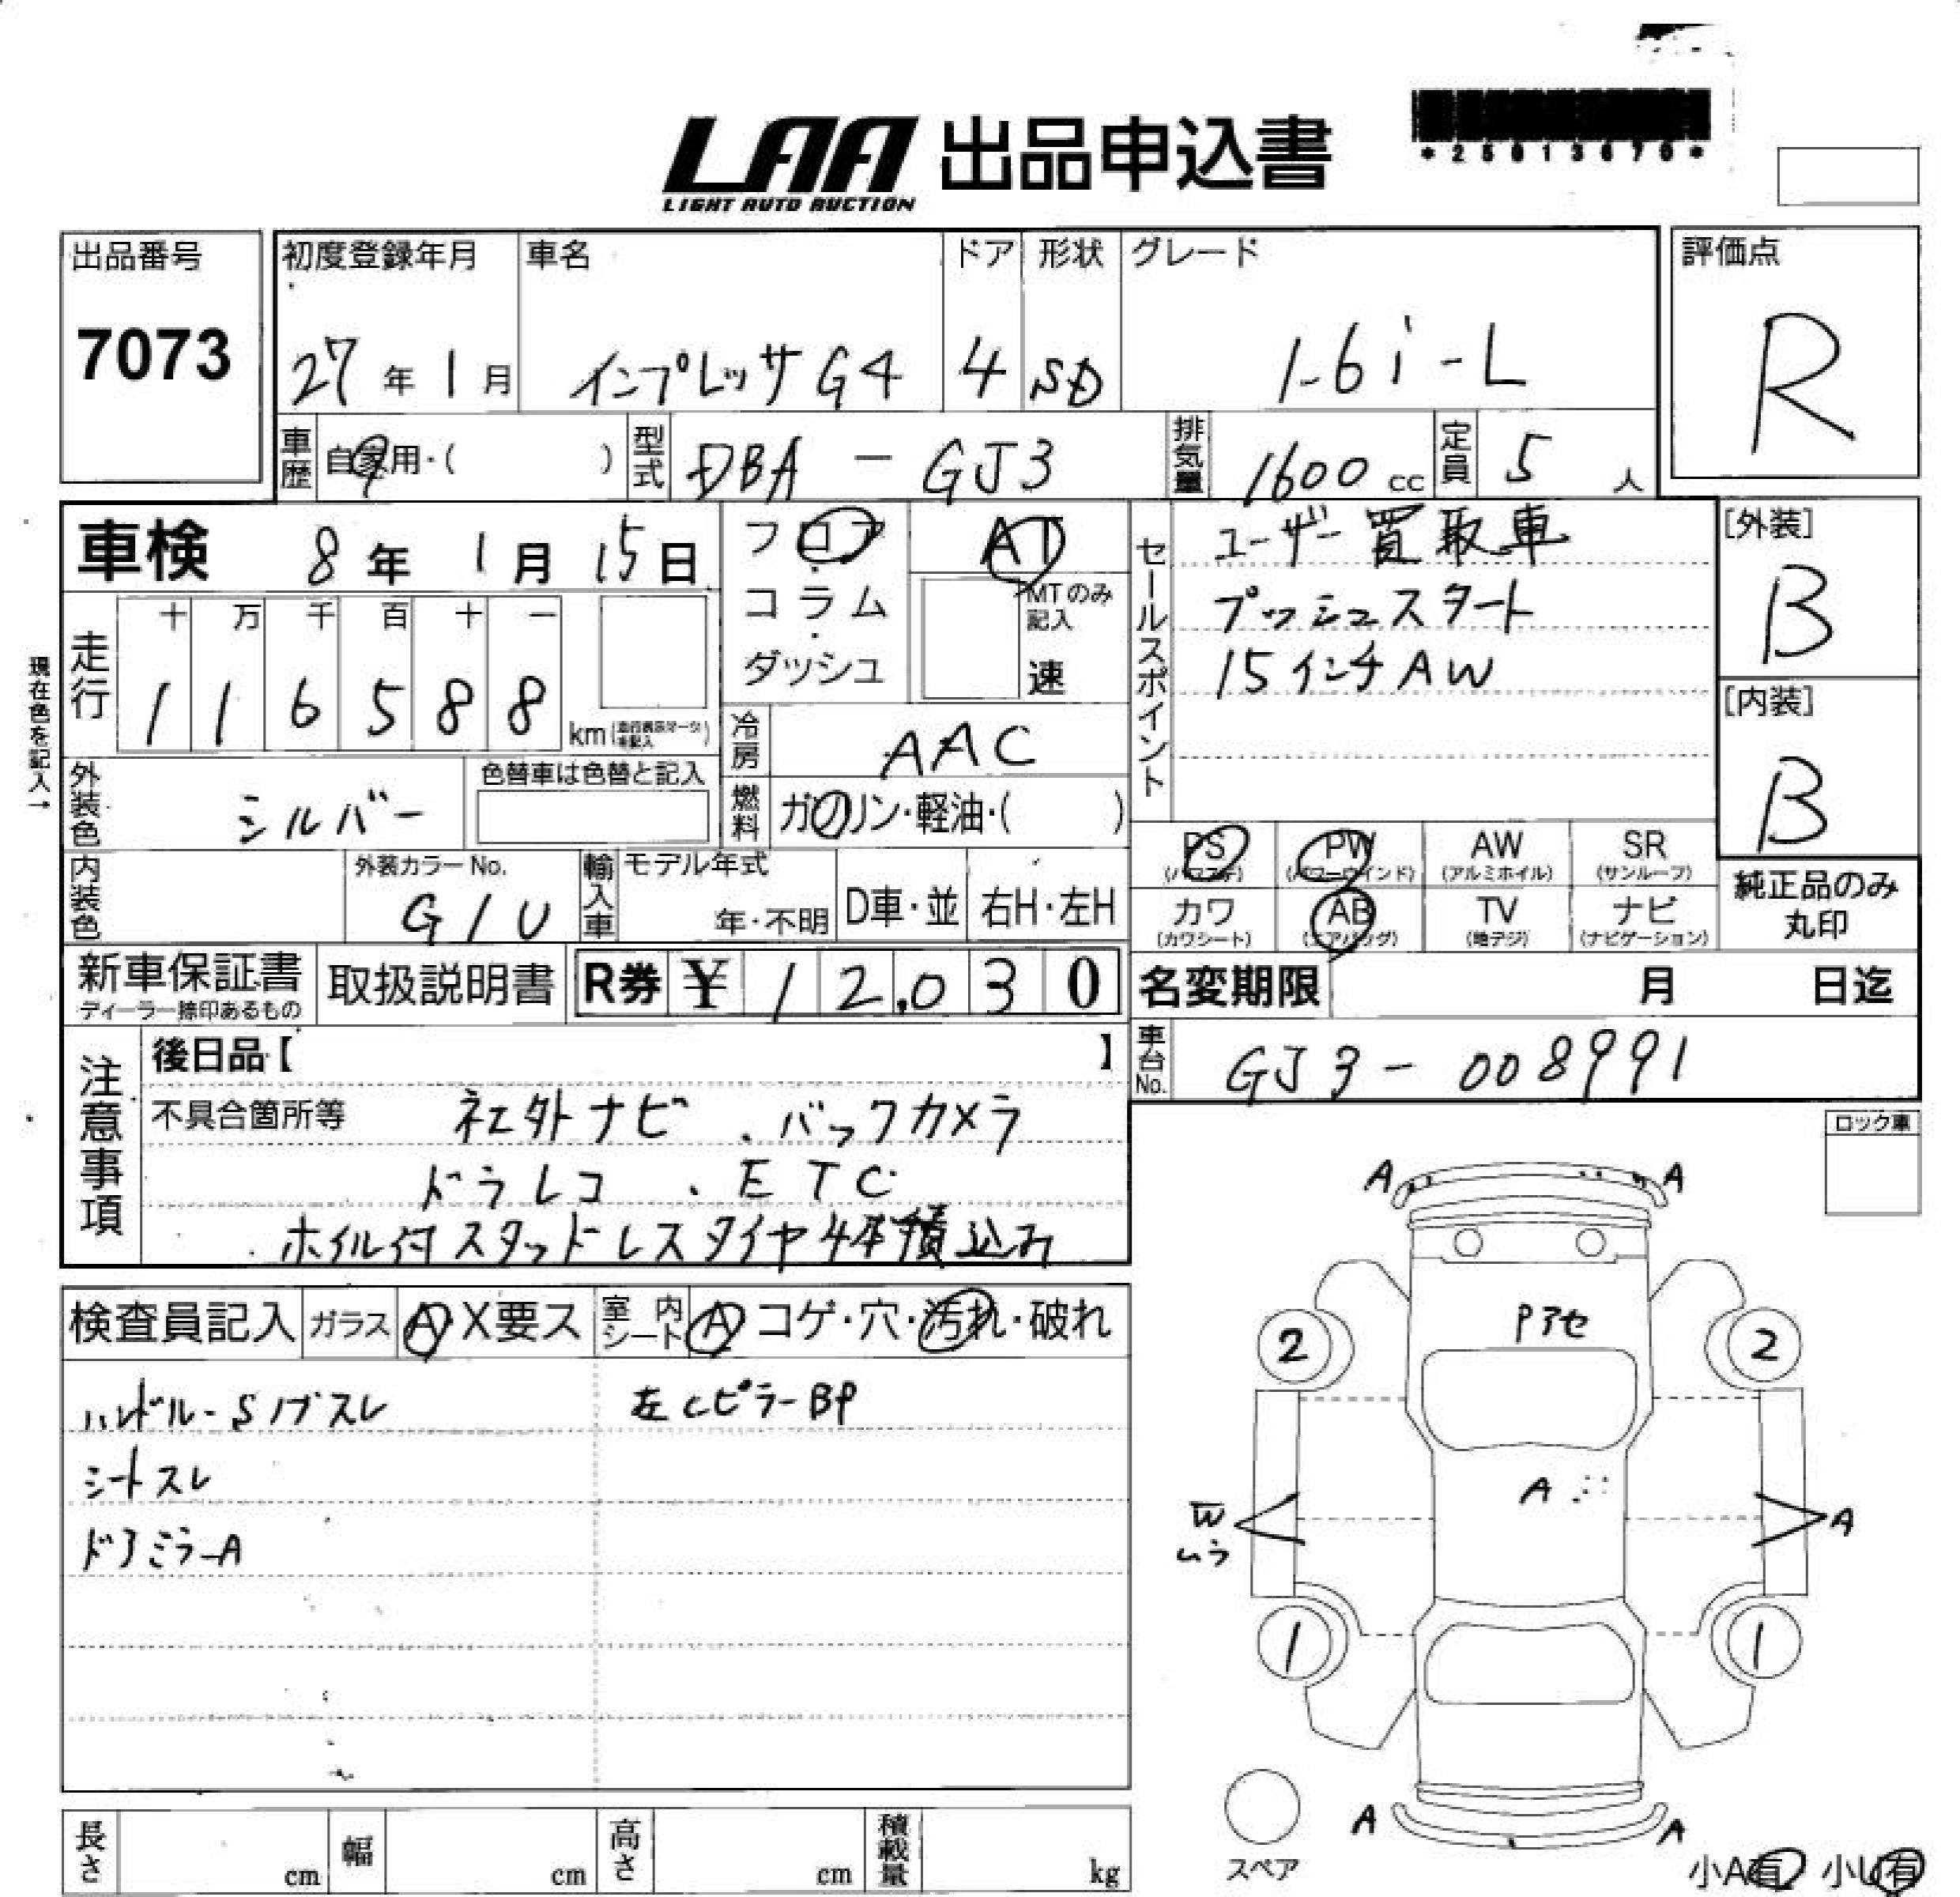 LAA 出品申込書
LIGHT AUTO AUCTION
*25013670*
出品番号
7073
初度登録年月
27年1月
車名
インプレッサG4
ドア
4
形状
SD
グレード
1.6i-L
評価点
R
車歴
自家用・( )
型式
DBA-GJ3
排気量
1600cc
定員
5人
車検 8年1月15日
フロア・コラム・ダッシュ
AT
MTのみ記入
速
セールスポイント
ユーザー買取車
プッシュスタート
15インチAW
[外装]
B
[内装]
B
現在色を記入→
走行
十 万 千 百 十 一
1 1 6 5 8 8
km
冷房
AAC
外装色
シルバー
色替車は色替と記入
燃料
ガソリン・軽油・( )
内装色
外装カラーNo.
G1U
輸入車
モデル年式
年・不明
D車・並
右H・左H
PS (パワステ)
PW (パワーウインド)
AW (アルミホイル)
SR (サンルーフ)
カワ (カワシート)
AB (エアバッグ)
TV (地デジ)
ナビ (ナビゲーション)
純正品のみ丸印
新車保証書
ディーラー捺印あるもの
取扱説明書
R券 ¥12,030
名変期限 月 日迄
車台No.
GJ3-008991
注意事項
後日品【 】
不具合箇所等
社外ナビ、バックカメラ
ドラレコ、ETC
ホイル付スタッドレスタイヤ4本積込み
ロック車
検査員記入
ガラス
A X要ス
室内シート
A コゲ・穴・汚れ・破れ
ハンドル-Sノブスレ
左CピラーBP
シートスレ
ドアミラーA
A A
Pアセ
2 2
A
W
ムラ
A
1 1
A A
スペア
小A有 小U有
長さ cm
幅 cm
高さ cm
積載量 kg